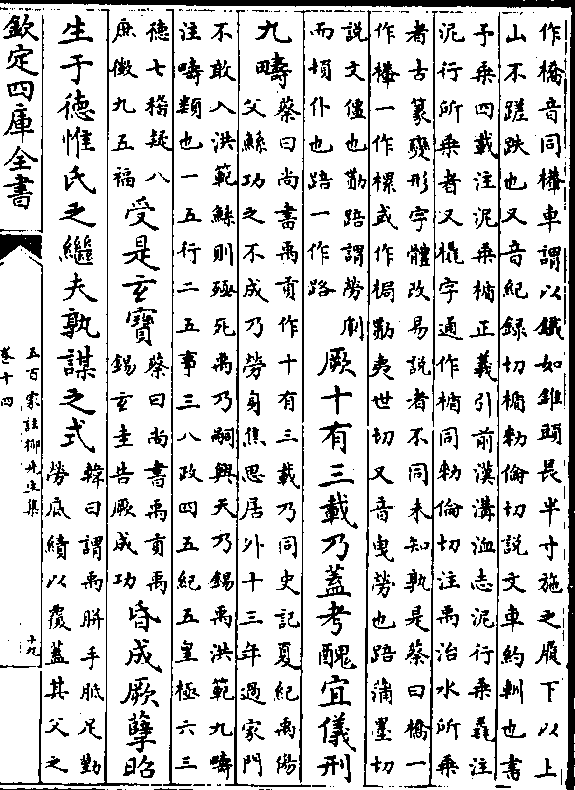 作橋音同檋車謂以鐵如錐頭長半寸施之履下以上
山不蹉跌也又音紀録切楯勑倫切説文車約軕也書
予乘四載注泥乘楯正義引前漢溝洫志泥行乘毳注
泥行所乘者又橇字通作楯同勑倫切注禹治水所乘
者古篆變形字體改易説者不同未知孰是蔡曰橋一
作檋一作樏或作梮勩夷世切又音曳勞也踣蒲墨切
説文僵也勩踣謂勞劇
而頓仆也踣一作路
厥十有三載乃蓋考醜宜儀刑
九疇
蔡曰尚書禹貢作十有三載乃同史記夏紀禹傷
父鯀功之不成乃勞身焦思居外十三年過家門
不敢入洪範鯀則殛死禹乃嗣興天乃錫禹洪範九疇
注疇類也一五行二五事三八政四五紀五皇極六三
徳七稽疑八
庶徴九五福
受是玄寳
蔡曰尚書禹貢禹
錫玄圭告厥成功
昏成厥孽昭
生于徳惟氏之繼夫孰謀之式
韓曰謂禹胼手胝足勤
勞底績以覆蓋其父之
欽定四庫全書
五百家註柳先生集
卷十四
十九